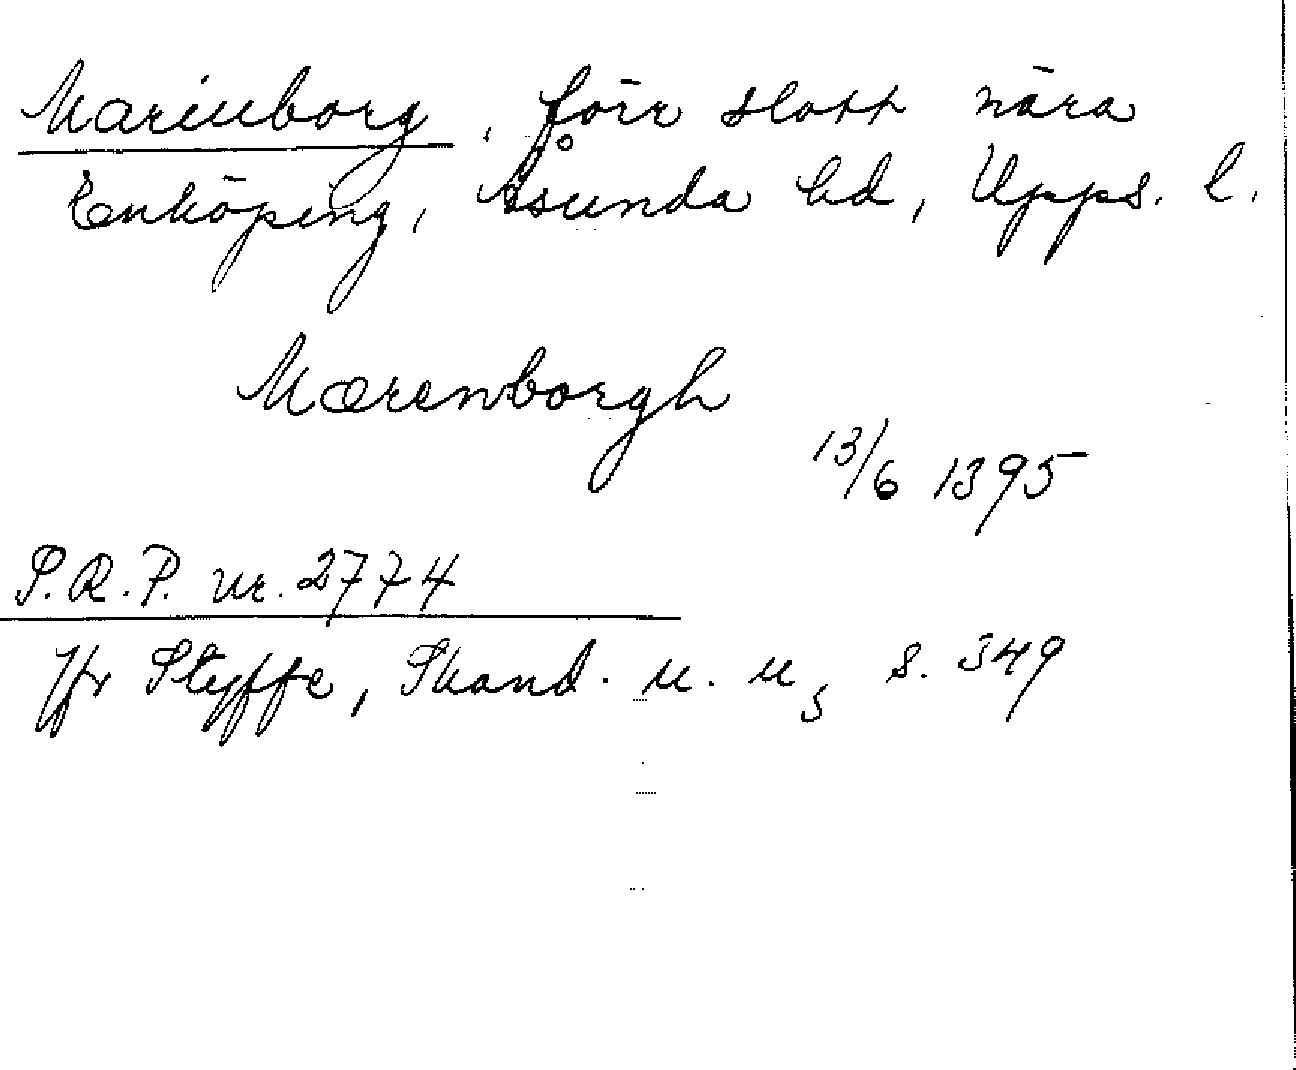 Marieborg, förr slott nära
Enköping, Åsunda hd, Upps. l.
Mærenborgh
13/6 1395
S.R.P. nr. 2774
Jfr Styffe, Skand. u. u, s. 349